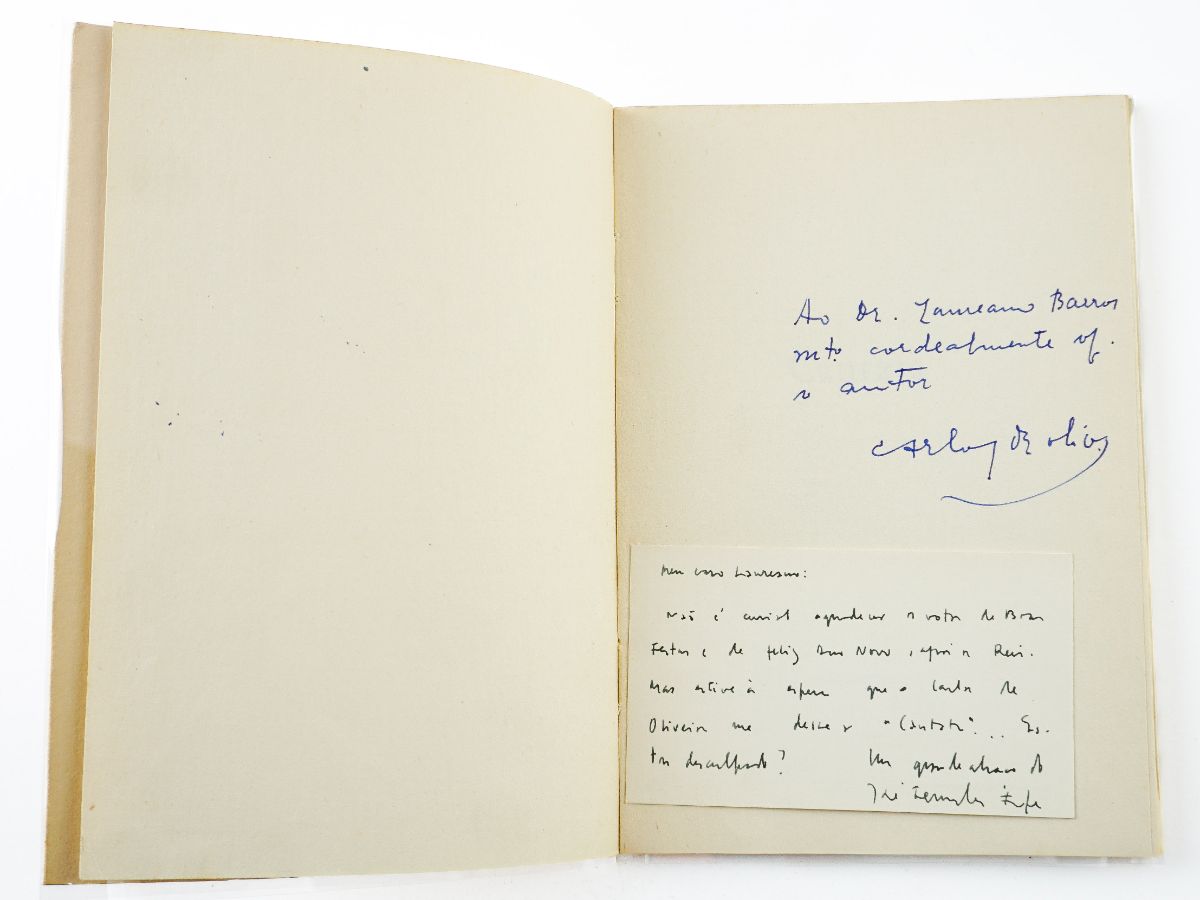 Ao Dr. Laureano Barros
mto. cordealmente of.
o autor
Carlos de Oliv.
Meu caro Laureano:
Não é curial agradecer os votos de Boas
Festas e de feliz Ano Novo, após os Reis.
Mas estive à espera que o Carlos de
Oliveira me desse a "Cantata"... Es-
tou desculpado? Um grande abraço do
José Fernandes Fafe